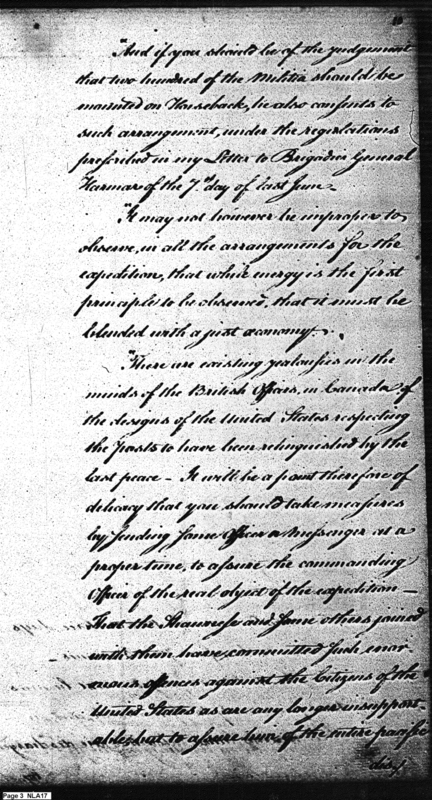 "And if you should be of the judgement
that two hundred of the Militia should be
mounted on Horseback, he also consents to
such arrangement, under the regulations
prescribed in my Letter to Brigadier General
Harmar of the 7th day of last June.
"It may not however be improper to
observe, in all the arrangements for the
expedition, that while energy is the first
principle to be observed, that it must be
blended with a just œconomy.
"There are existing jealousies in the
minds of the British Officers, in Canada of
the designs of the United States respecting
the posts to have been relinquished by the
last peace — It will be a point therefore of
delicacy that you should take measures
by sending some Officer or Messenger at a
proper time, to assure the commanding
Officer of the real object of the expedition —
That the Shawnese and some others joined
with them have, committed such enor-
mous offences against the Citizens of the
United States as are any longer insupport-
able; but to assure him of the entire pacific
dis-
Page 3 NLA17